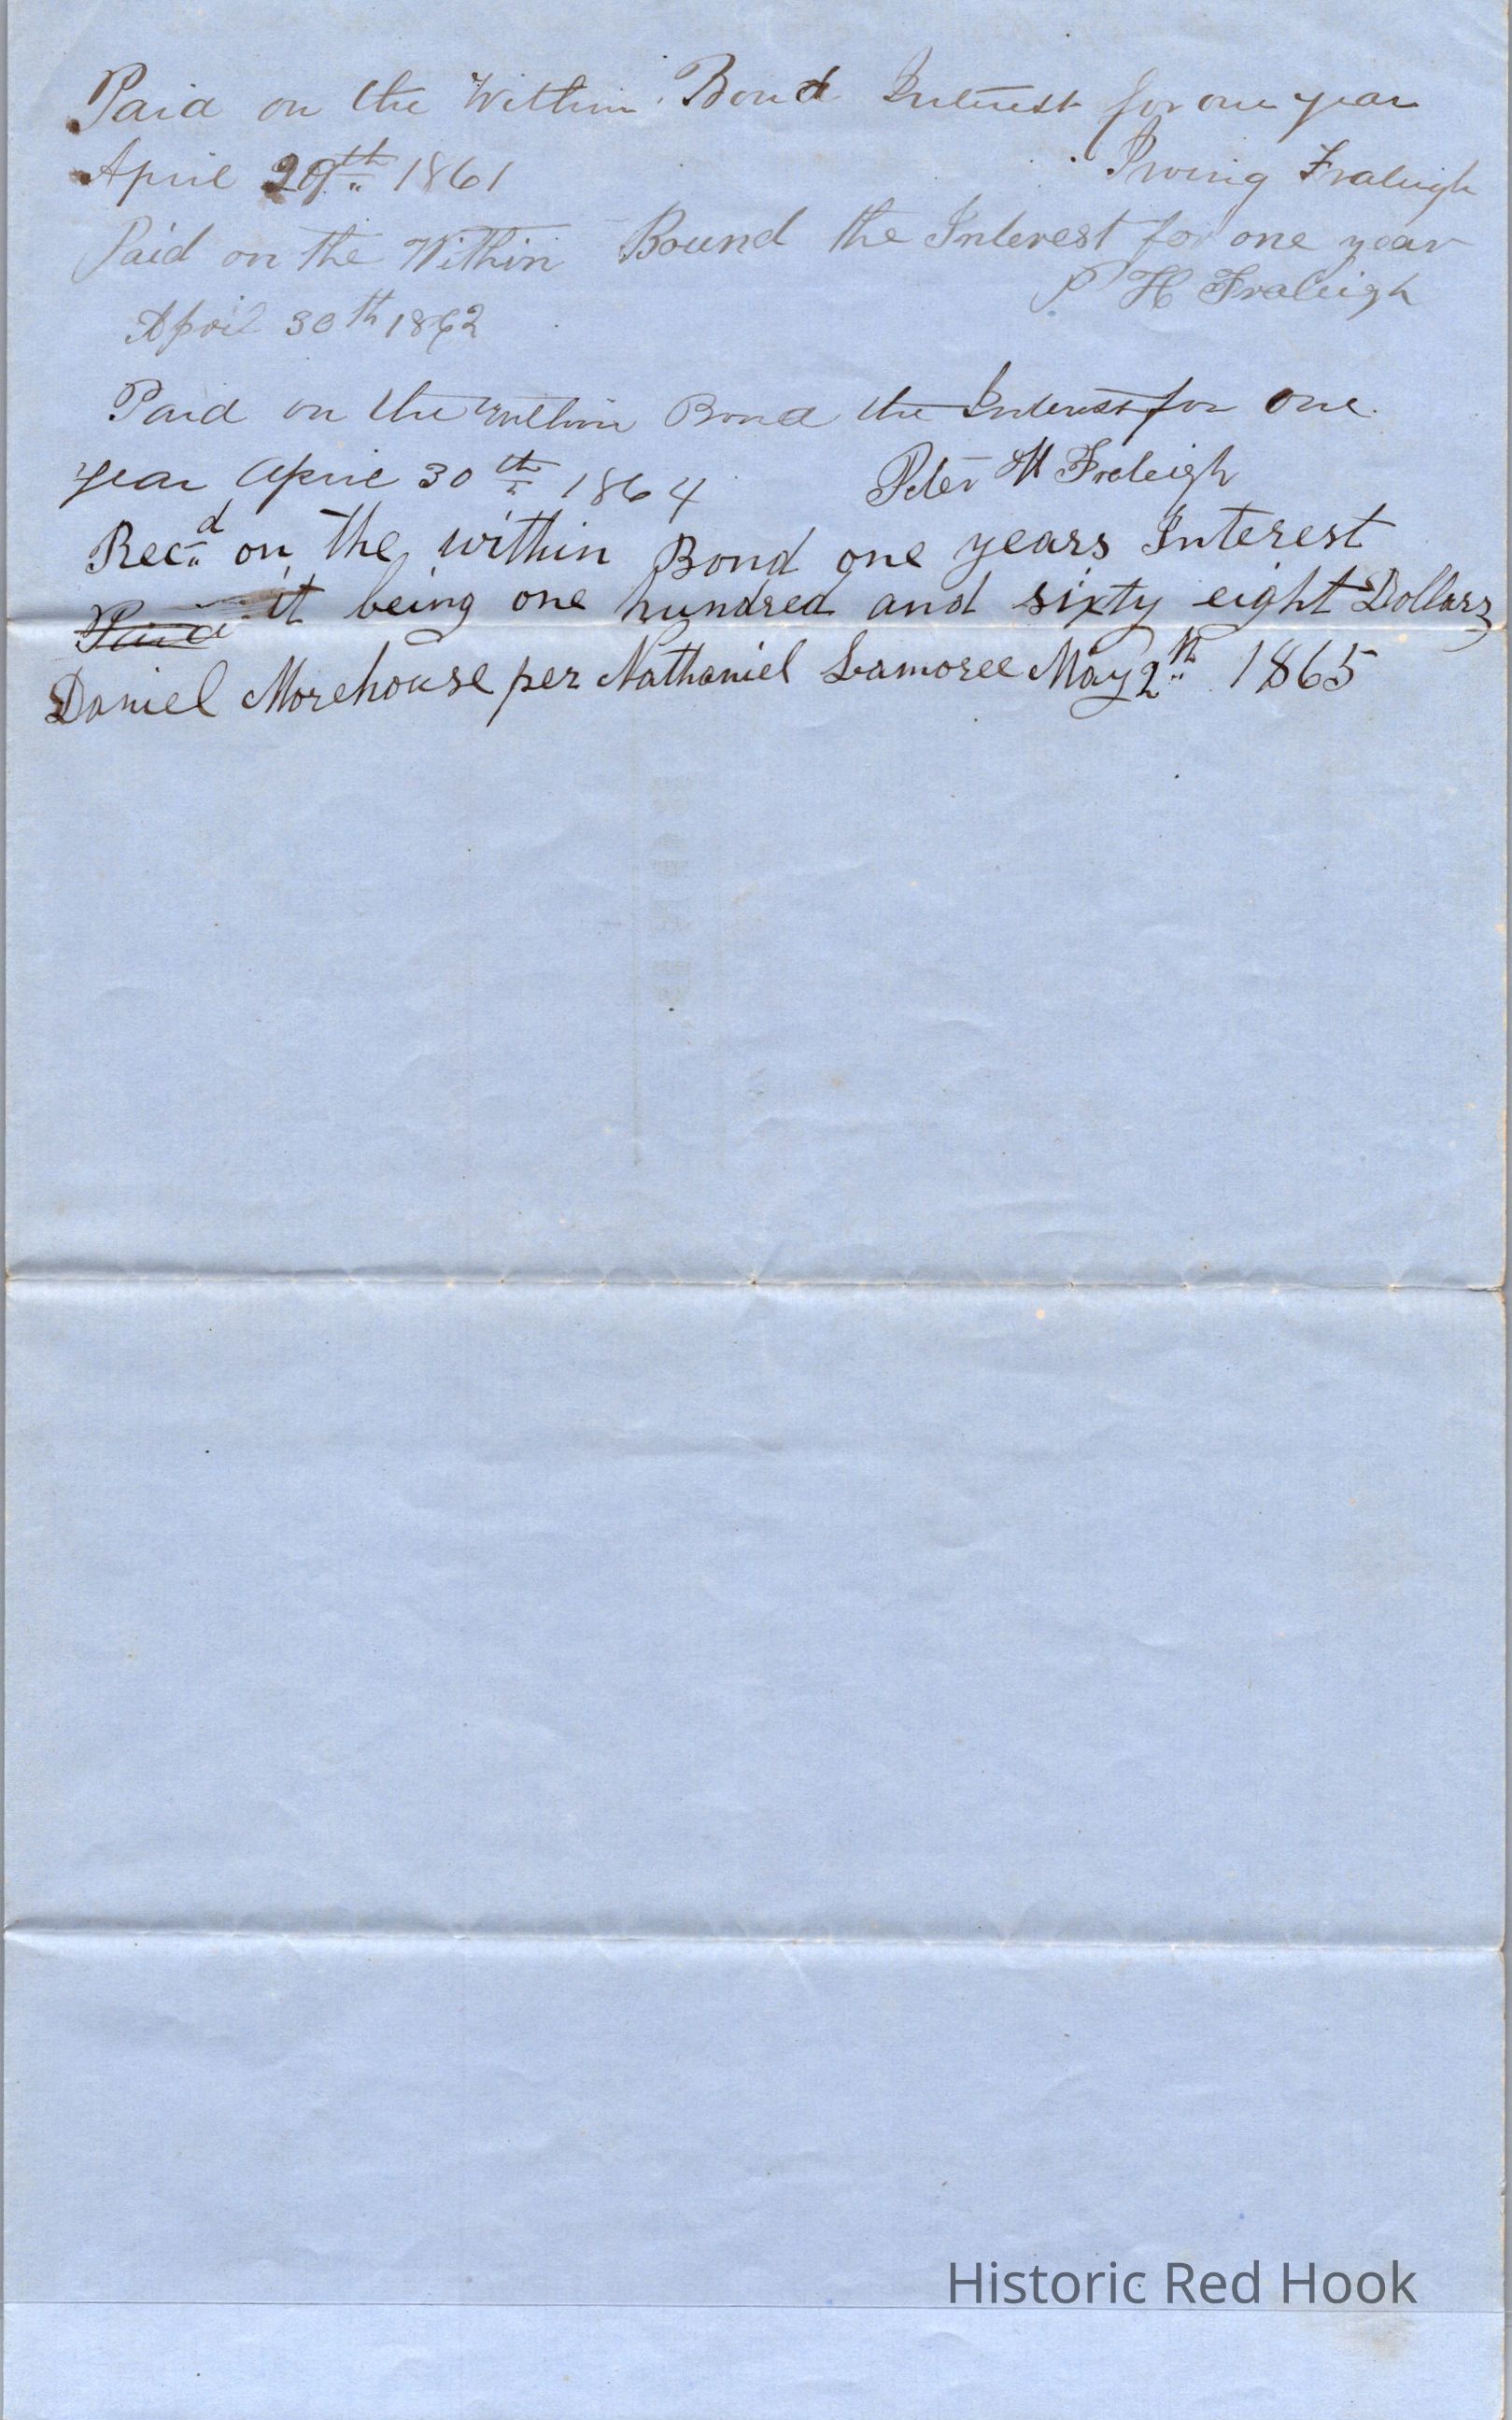 Paid on the Within Bond Interest for one year
April 29th 1861 Irving Fraleigh
Paid on the Within Bound the Interest for one year
P H Fraleigh
April 30th 1862
Paid on the within Bond the Interest for one
year April 30th 1864 Peter H Fraleigh
Recd on the within Bond one years Interest
Paid it being one hundred and sixty eight Dollars
Daniel Morehouse per Nathaniel Lamoree May 2th 1865
Historic Red Hook